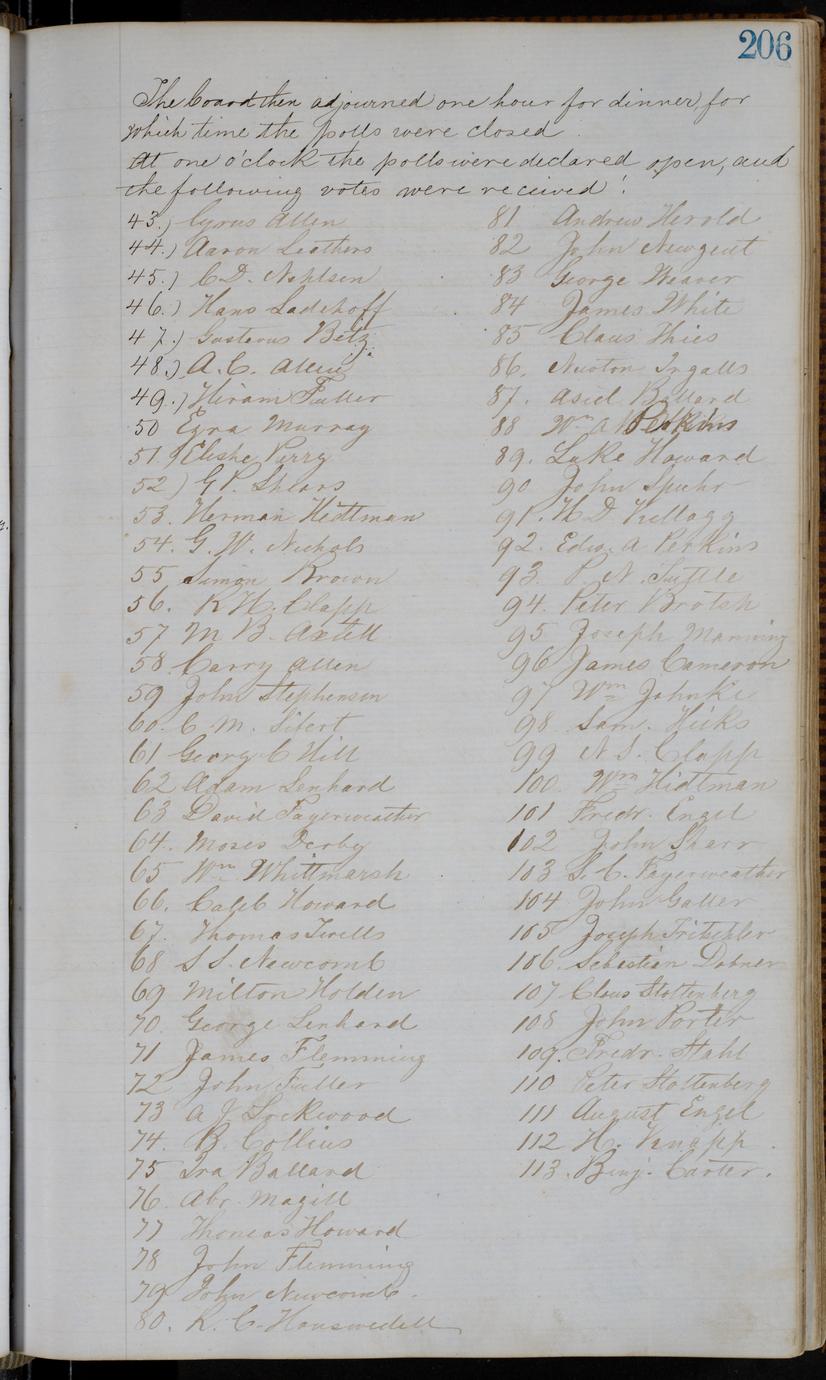 206
The board then adjourned one hour for dinner, for
which time the polls were closed.
At one o'clock the polls were declared open, and
the following votes were received:
43.) Cyrus Allen
44.) Aaron Leathers
45.) C. D. Nahlsen
46.) Hans Ladehoff
47.) Gustavus Betz
48.) A. C. Allen
49.) Hiram Fuller
50 Ezra Murray
51.) Elisha Perry
52) G. P. Shears
53. Herman Hidtman
54. G. W. Nichols
55 Simon Brown
56. R. H. Clapp
57 M B. Axtell
58 Carry Allen
59 John Stephenson
60. C. M. Sifert
61 Georg C Hill
62 Adam Lenhard
63 David Fayerweather
64. Moses Derby
65 Wm Whittmarsh
66. Caleb Howard
67. Thomas Twells
68 S S. Newcomb
69 Milton Holden
70. George Lenhard
71 James Flemming
72 John Fuller
73 A J Lockwood
74. B. Collins
75 Ira Ballard
76. Abr. Magill
77 Thomas Howard
78 John Flemming
79 John Newcomb.
80. R. C. Hanswedell
81 Andrew Herold
82 John Newgent
83 George Weaver
84 James White
85 Claus Thies
86. Newton Ingalls
87. Asiel Ballard
88 Wm A Perkins
89. Luke Howard
90 John Spuhr
91. H D Kellogg
92. Edw. A Perkins
93. P. N. Tuttle
94. Peter Brotsh
95 Joseph Manning
96 James Cameron
97 Wm Johnke
98 Sam. Hicks
99 N S. Clapp
100. Wm Hidtman
101 Fredr. Engel
102 John Sharr
103 S. C. Fayerweather
104 John Galler
105 Joseph Tritschler
106. Sebastian Dobner
107 Claus Stoltenberg
108 John Porter
109. Fredr. Stahl
110 Peter Stoltenberg
111 August Engel
112 H. Knapp.
113. Benj. Carter.